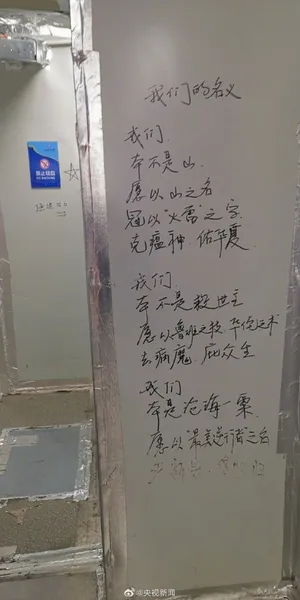 我们的名义
我们.
本不是山.
愿以山之名
冠以“火雷”之字
克瘟神.佑华夏.
我们.
本不是救世主
愿以鲁班之技.华佗之术
去病魔.庇众生
我们
本是沧海一粟.
愿以“最美逆行者”之名
禁止吸烟
NO SMOKING
@央视新闻